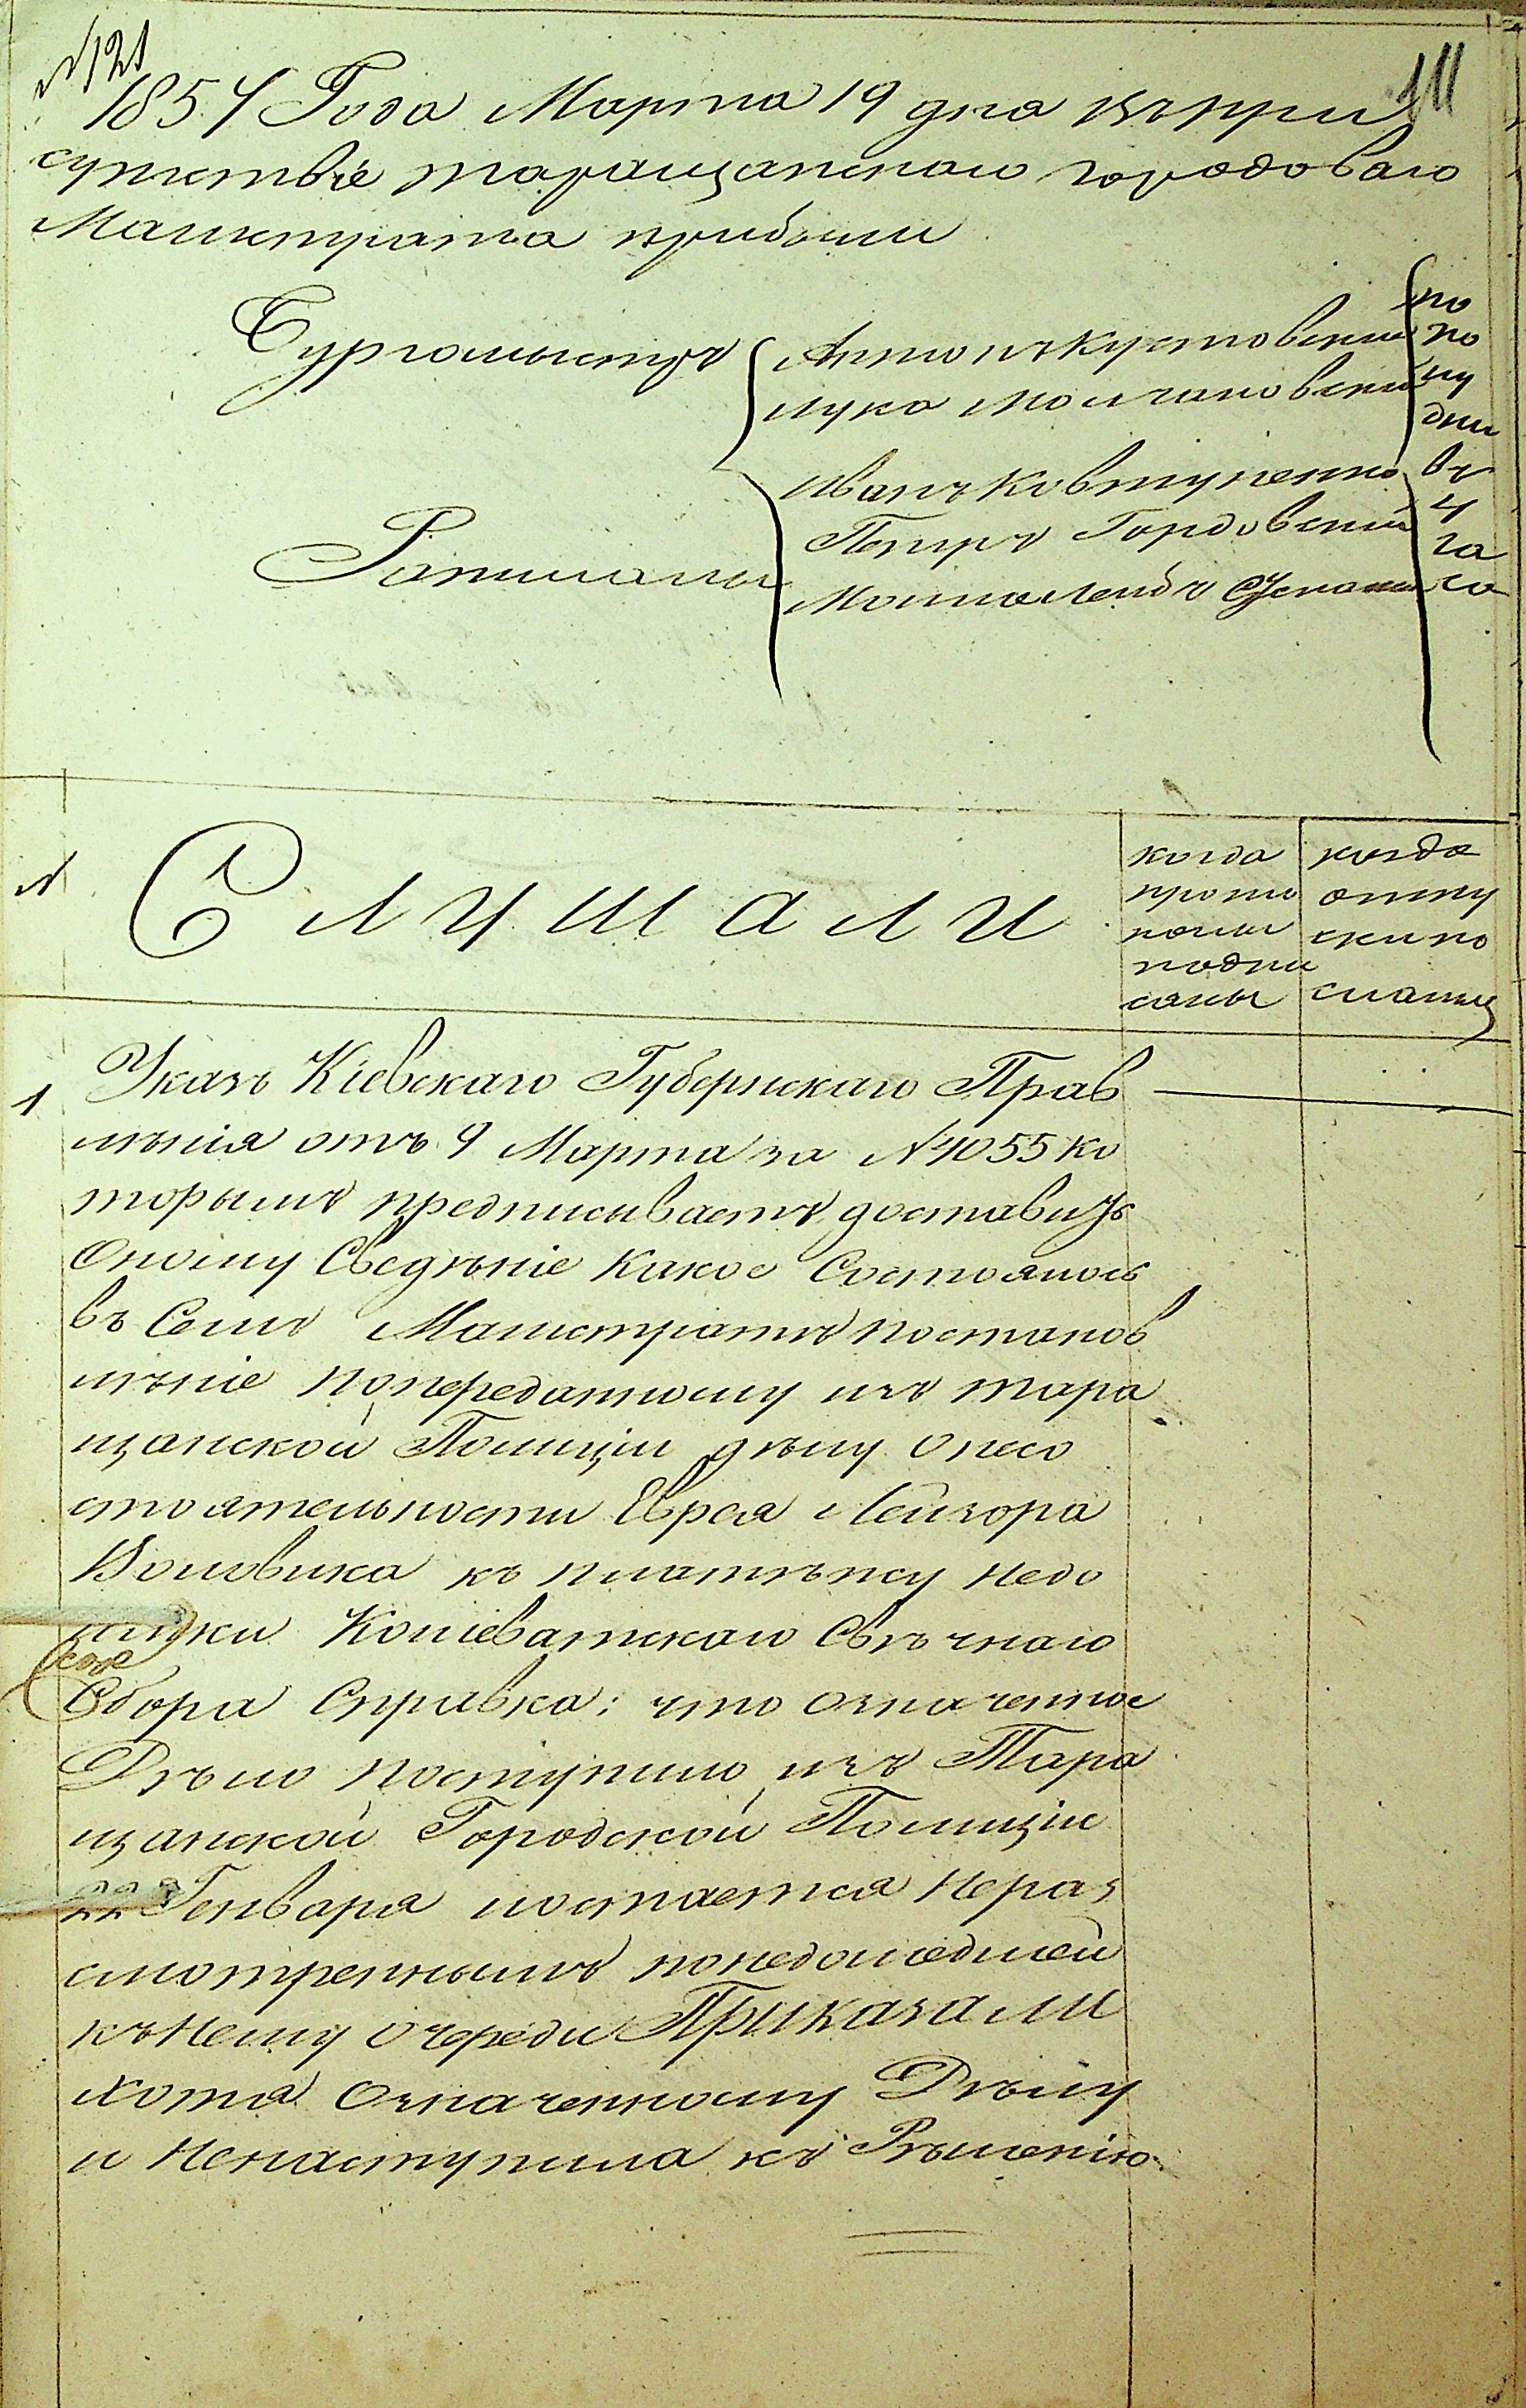 № 121
111
1854 Года Марта 19 дня въ при
сутствіе таращанскаго городоваго
Магистрата прибыли
Бургомыстръ
Антонъ Кустовскій
Лука Молчановскій
Ратманы
Иванъ Ковтуненко
Петръ Гордовскій
Мошко Лейбъ
по
по
лу
дни
въ
4
ча
са
№
Слушали
когда
прото
колы
подпи
саны
когда
отпу
ски по
сланы
1
Указъ Кіевскаго Губернскаго Прав
лѣнія отъ 9 Марта за №4055 ко
торымъ предписываетъ доставить
оному Сведѣніе какое Состоялось
въ Семъ Магистратѣ постанов
лѣніе по переданному изъ тара
щанской Полиціи дѣлу о несо
стоятельности Еврея Лейзора
Воловика къ платѣжу недо
имки Кошеватскаго Свѣчнаго
Сбора Справка: что означенное
Дѣло поступило изъ Тара
щанской Городской Полиціи
22 Генваря и остается нераз
смотреннымъ по недошедшей
къ нему очереди Приказали
хотя означенному Дѣлу
и ненаступила къ Рѣшенію